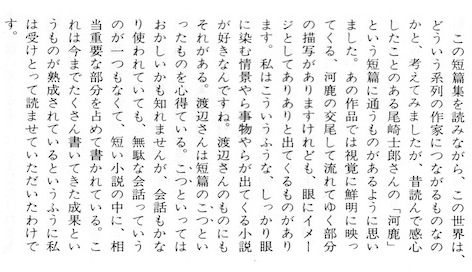 この短篇集を読みながら、この世界は、
どういう系列の作家につながるものなの
かと、考えてみましたが、昔読んで感心
したことのある尾崎士郎さんの「河鹿」
という短篇に通うものがあるように思い
ました。あの作品では視覚に鮮明に映っ
てくる、河鹿の交尾して流れてゆく部分
の描写がありますけれども、眼にイメー
ジとしてありありと出てくるものがあり
ます。私はこういうふうな、しっかり眼
に染む情景やら事物やらが出てくる小説
が好きなんですね。渡辺さんのものにも
それがある。渡辺さんは短篇のこつとい
ったものを心得ている。こつといっては
おかしいかも知れませんが、会話もかな
り使われていても、無駄な会話っていう
のが一つもなくて、短い小説の中に、相
当重要な部分を占めて書かれている。こ
れは今までたくさん書いてきた成果とい
うものが熟成されているというふうに私
は受けとって読ませていただいたわけで
す。